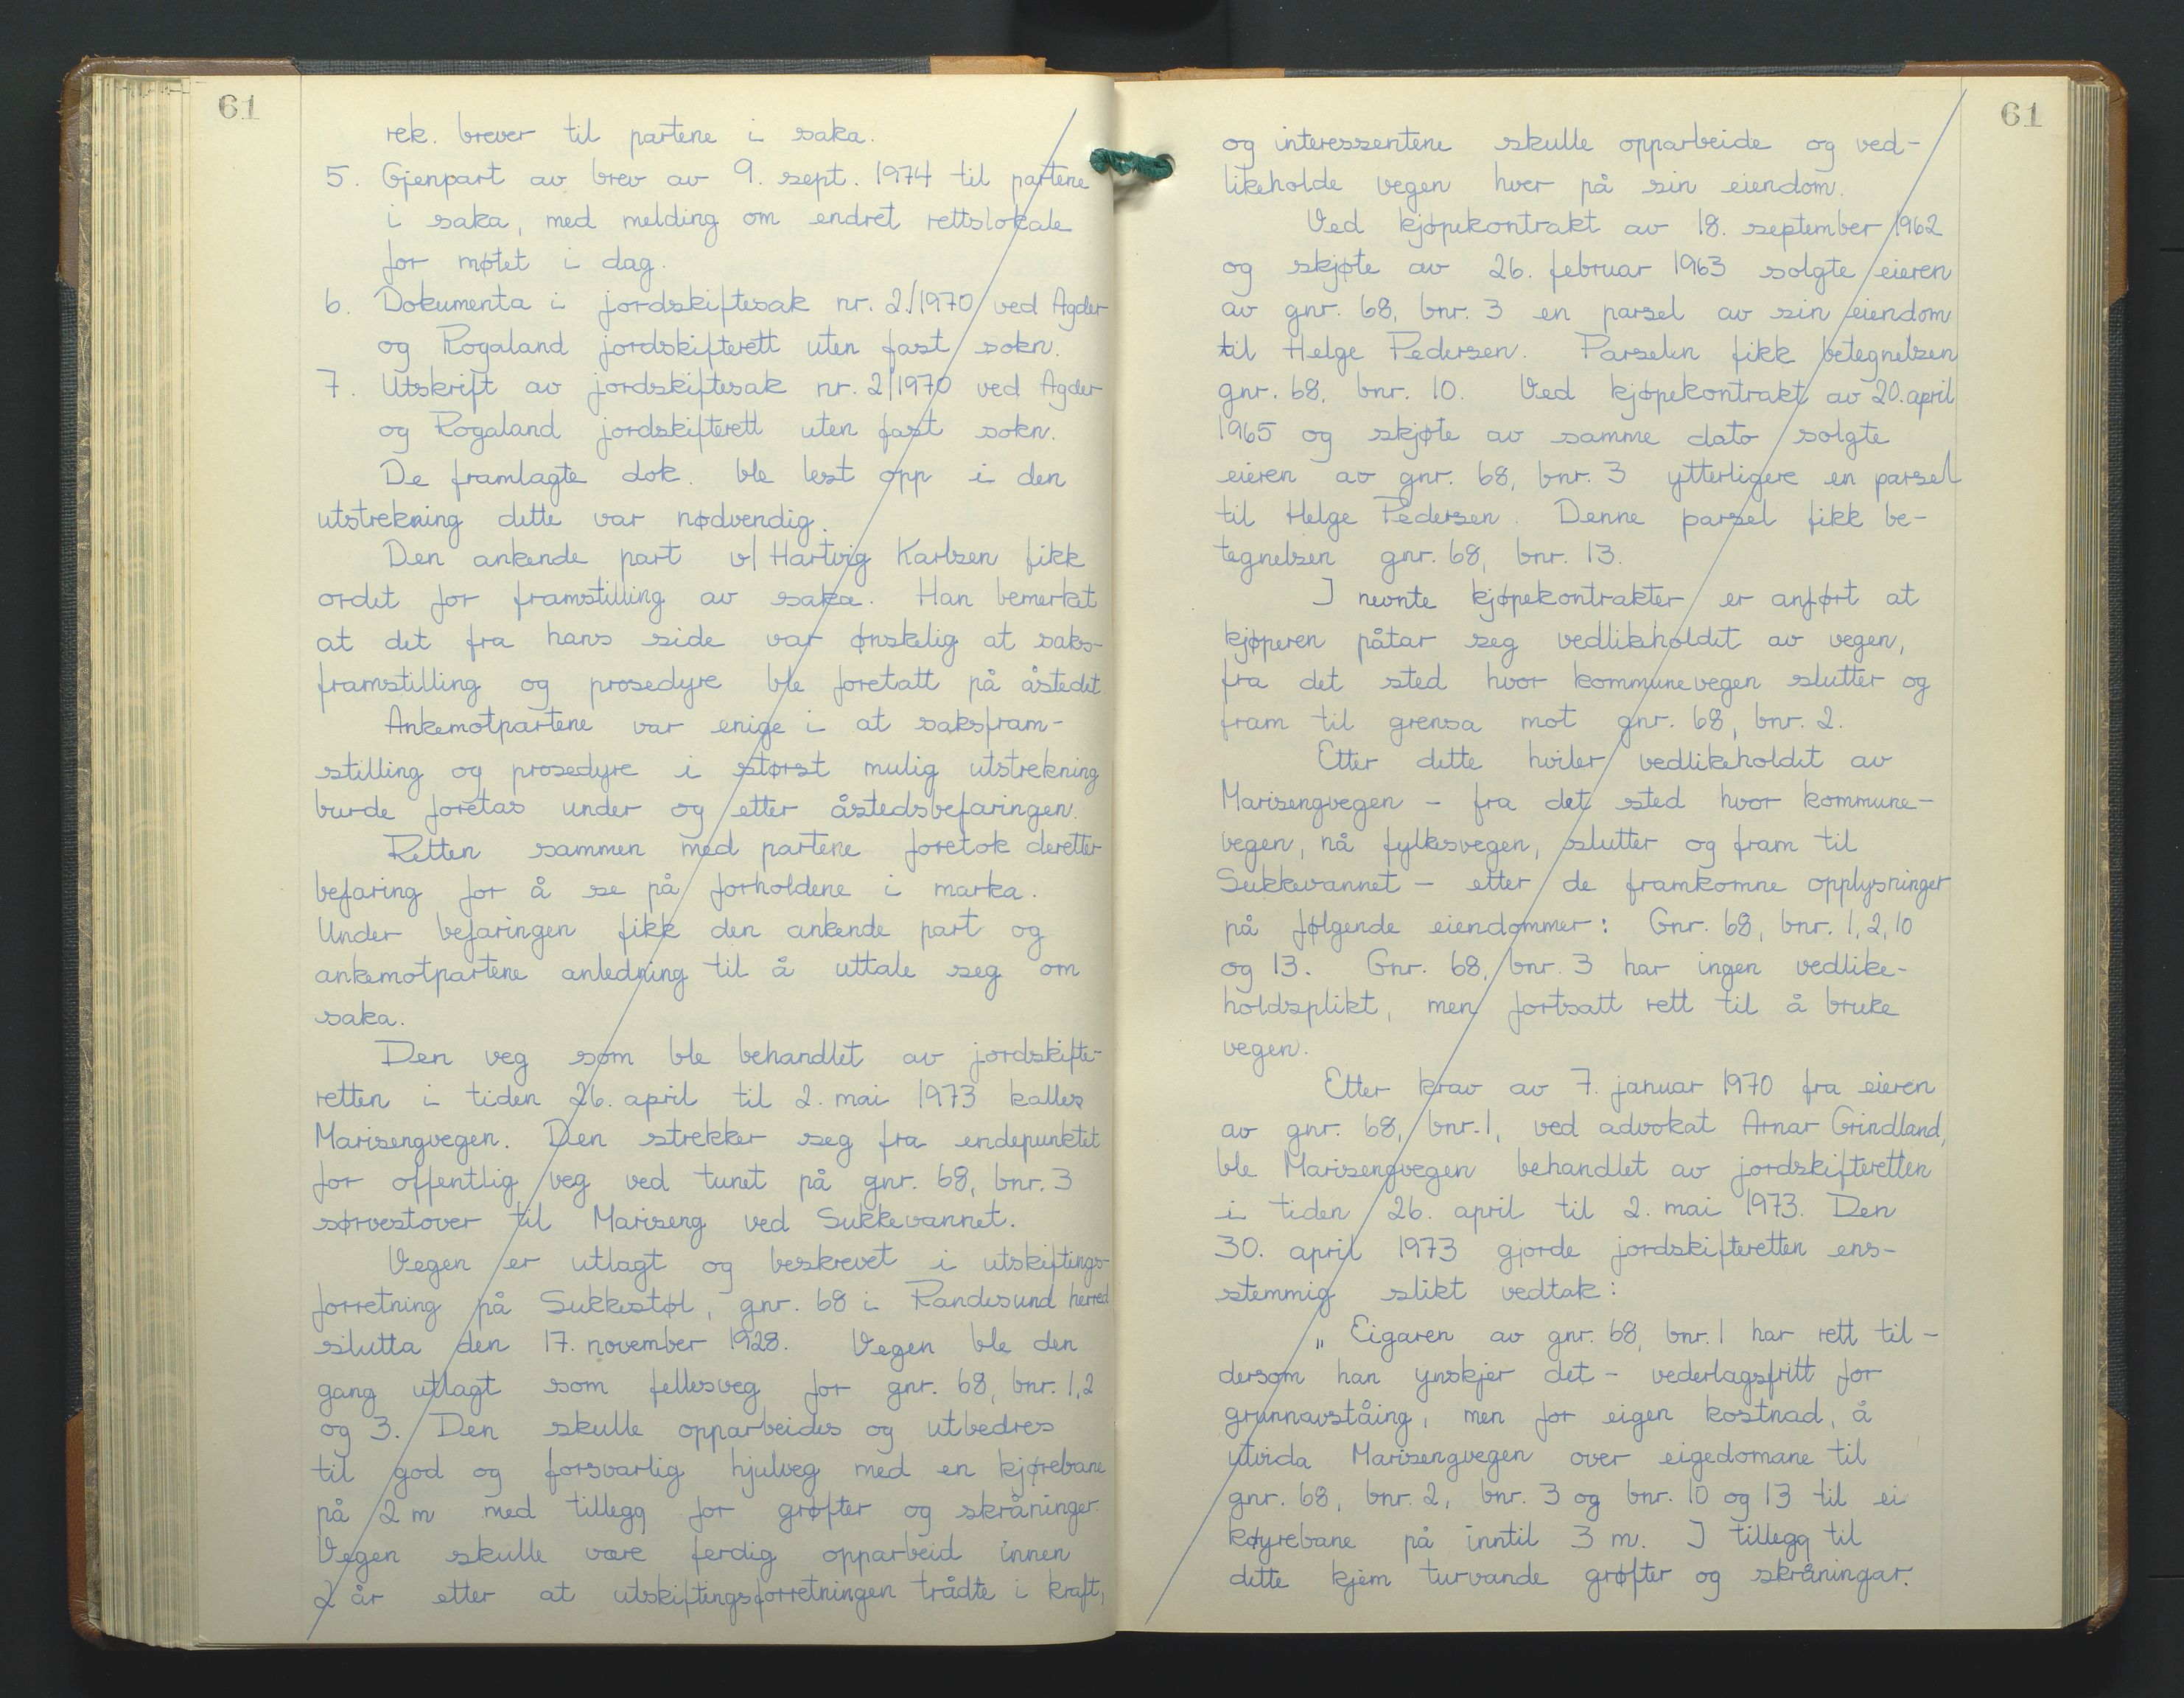 61
rek. brever til partene i saka.
5. Gjenpart av brev av 9. sept. 1974 til partene
i saka, med melding om endret rettslokale
for møtet i dag.
6. Dokumenta i jordskiftesak nr. 2/1970 ved Agder
og Rogaland jordskifterett uten fast sokn.
7. Utskrift av jordskiftesak nr. 2/1970 ved Agder
og Rogaland jordskifterett uten fast sokn.
De framlagte dok. ble lest opp i den
utstrekning dette var nødvendig.
Den ankende part v/ Hartvig Karlsen fikk
ordet for framstilling av saka. Han bemerket
at det fra hans side var ønskelig at saks-
framstilling og prosedyre ble foretatt på åstedet.
Ankemotpartene var enige i at saksfram-
stilling og prosedyre i størst mulig utstrekning
burde foretas under og etter åstedsbefaringen.
Retten sammen med partene foretok deretter
befaring for å se på forholdene i marka.
Under befaringen fikk den ankende part og
ankemotpartene anledning til å uttale seg om
saka.
Den veg som ble behandlet av jordskifte-
retten i tiden 26. april til 2. mai 1973 kalles
Marisengvegen. Den strekker seg fra endepunktet
for offentlig veg ved tunet på gnr. 68, bnr. 3
sørvestover til Mariseng ved Sukkevannet.
Vegen er utlagt og beskrevet i utskiftings-
forretning på Sukkestøl, gnr. 68 i Randesund herred
slutta den 17. november 1928. Vegen ble den
gang utlagt som fellesveg for gnr. 68, bnr. 1,2
og 3. Den skulle opparbeides og utbedres
til god og forsvarlig hjulveg med en kjørebane
på 2 m med tillegg for grøfter og skråninger.
Vegen skulle være ferdig opparbeid innen
2 år etter at utskiftingsforretningen trådte i kraft,
61
og interessentene skulle opparbeide og ved-
likeholde vegen hver på sin eiendom.
Ved kjøpekontrakt av 18. september 1962
og skjøte av 26. februar 1963 solgte eieren
av gnr. 68, bnr. 3 en parsel av sin eiendom
til Helge Pedersen. Parselen fikk betegnelsen
gnr. 68, bnr. 10. Ved kjøpekontrakt av 20. april
1965 og skjøte av samme dato solgte
eieren av gnr. 68, bnr. 3 ytterligere en parsel
til Helge Pedersen. Denne parsel fikk be-
tegnelsen gnr. 68, bnr. 13.
I nevnte kjøpekontrakter er anført at
kjøperen påtar seg vedlikeholdet av vegen,
fra det sted hvor kommunevegen slutter og
fram til grensa mot gnr. 68, bnr. 2.
Etter dette hviler vedlikeholdet av
Marisengvegen - fra det sted hvor kommune-
vegen, nå fylkesvegen, slutter og fram til
Sukkevannet - etter de framkomne opplysninger
på følgende eiendommer: Gnr. 68, bnr. 1, 2, 10
og 13. Gnr. 68, bnr. 3 har ingen vedlike-
holdsplikt, men fortsatt rett til å bruke
vegen.
Etter krav av 7. januar 1970 fra eieren
av gnr. 68, bnr. 1, ved advokat Arnar Grindland,
ble Marisengvegen behandlet av jordskifteretten
i tiden 26. april til 2. mai 1973. Den
30. april 1973 gjorde jordskifteretten ens-
stemmig slikt vedtak:
„ Eigaren av gnr. 68, bnr. 1 har rett til -
dersom han ynskjer det - vederlagsfritt for
grunnavståing, men for eigen kostnad, å
utvida Marisengvegen over eigedomane til
gnr. 68, bnr. 2, bnr. 3 og bnr. 10 og 13 til ei
køyrebane på inntil 3 m. I tillegg til
dette kjem turvande grøfter og skråningar.